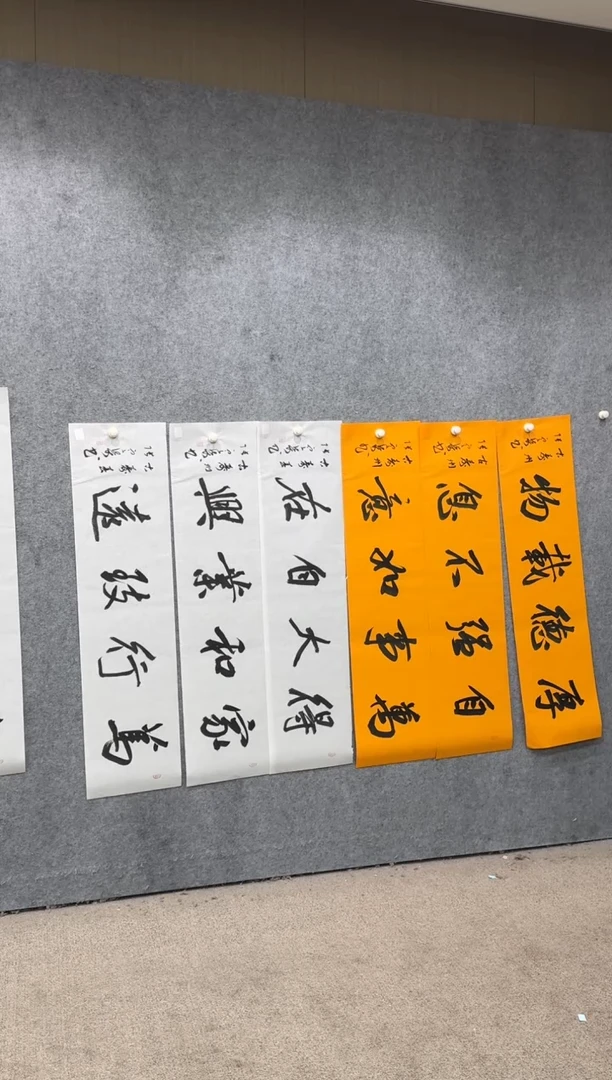 厚德載物
自强不息
萬事如意
得大自在
家和業興
篤行致遠